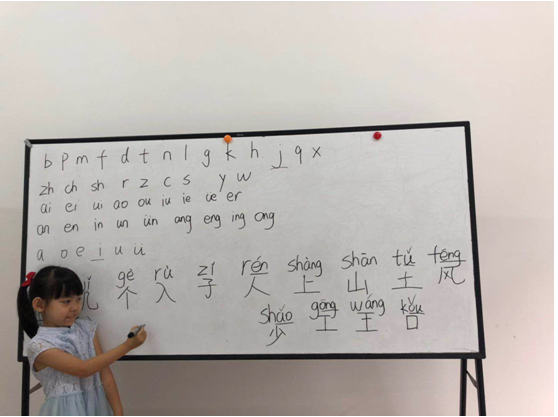 b p m f d t n l g k h j q x
zh ch sh r z c s y w
ai ei ui ao ou iu ie üe er
an en in un ün ang eng ing ong
a o e i u ü
gè rù zǐ rén shàng shān tǔ fēng
儿 个 入 子 人 上 山 土 风
shǎo gōng wáng kǒu
少 工 王 口